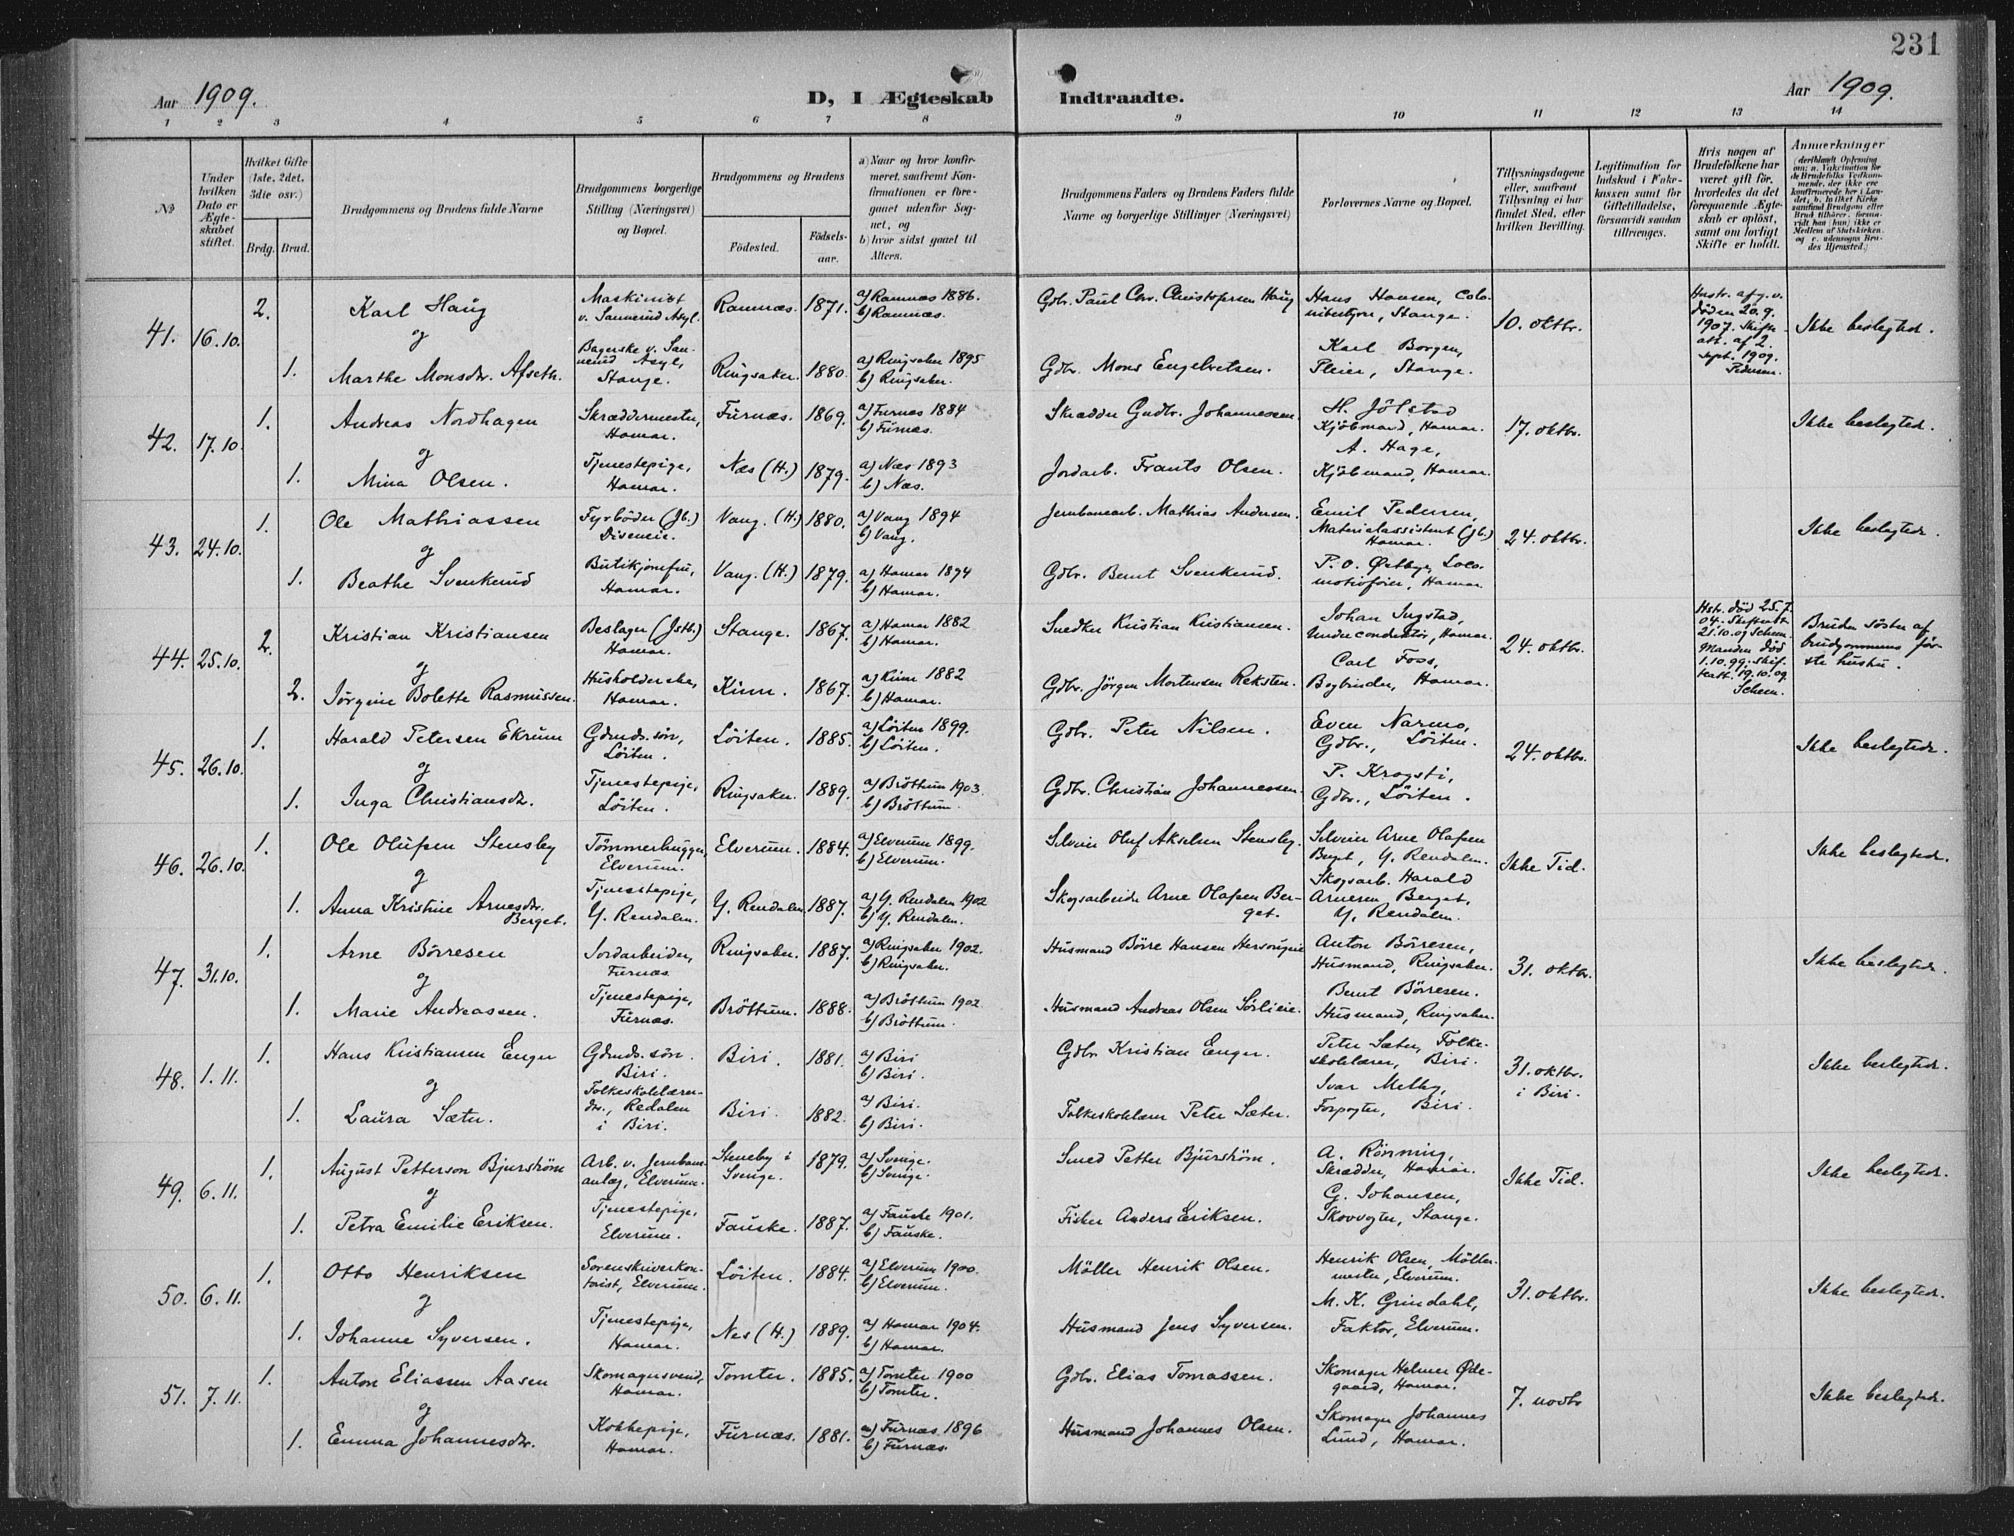 231
Aar 1909.
D, I Ægteskab Indtraadte.
Aar 1909.
1 2 3 4 5 6 7 8 9 10 11 12 13 14
No
Under hvilken Dato er Ægteskabet stiftet.
Hvilket Gifte (1ste, 2det, 3die osv.)
Brdg. Brud.
Brudgommens og Brudens fulde Navne
Brudgommens borgerlige Stilling (Næringsvei) og Bopæl.
Brudgommens og Brudens
Födested.
Födselsaar.
a) Naar og hvor konfirmeret, saafremt Konfirmationen er foregaaet udenfor Sognet, og
b) hvor sidst gaaet til Alters.
Brudgommens Faders og Brudens Faders fulde Navne og borgerlige Stillinger (Næringsvei)
Forlovernes Navne og Bopæl.
Tillysningsdagene eller, saafremt Tillysning ei har fundet Sted, efter hvilken Bevilling.
Legitimation for Indskud i Enkekassen samt for Giftetilladelse, forsaavidt saadan tiltrænges.
Hvis nogen af Brudefolkene har været gift för, hvorledes da det foregaaende Ægteskab er oplöst, samt om lovligt Skifte er holdt.
Anmærkninger
41. 16.10. 2. Karl Haug Maskinist v. Sannerud Asyl. Ramnæs. 1871. a) Ramnæs 1886. b) Ramnæs. Gdbr. Paul Chr. Christofersen Haug Hans Hansen, Colonibestyrer, Stange. 10. oktbr. Hustr. afg. v. döden 20.9. 1907. Skifteatt. af 2. sept. 1909. Pedersen. Ikke beslegtede.
og
1. Marthe Monsdr. Afseth. Bagerske v. Sannerud Asyl, Stange. Ringsaker. 1880. a) Ringsaker 1895 b) Ringsaker. Gdbr. Mons Engebretsen. Karl Borgen, Pleier, Stange.
42. 17.10. 1. Andreas Nordhagen Skræddermester, Hamar. Furnæs. 1869. a) Furnes 1884 b) Furnæs. Skrædder Gudbr. Johannessen. H. Jölstad Kjöbmand, Hamar. 17. oktbr. Ikke beslegtede.
og
1. Mina Olsen. Tjenestepige, Hamar. Næs (H.) 1879. a) Næs 1893 b) Næs. Jordarb. Frants Olsen. A. Hage, Kjöbmand, Hamar.
43. 24.10. 1. Ole Mathiassen Fyrböder (Jb.) Disencie. Vang. (H.) 1880. a) Vang 1894 b) Vang. Jernbanearb. Mathias Andersen. Emil Pedersen, Materialassistent (Jb.) Hamar. 24. oktbr. Ikke beslegtede.
og
1. Beathe Svenkerud Butikjomfru, Hamar. Vang. (H.) 1879. a) Hamar 1894 b) Hamar. Gdbr. Bernt Svenkerud. P. O. Østbye, Lokomotivföier, Hamar
44. 25.10. 2. Kristian Kristiansen Beslager (Jstb.) Hamar. Stange. 1867. a) Hamar 1882 b) Hamar. Snedker Kristian Kristiansen. Johan Ingstad, Underconduktör, Hamar. 24. oktbr. Hstr. död 25.7. 04. Skifteatt. 21.10.09 Scheen. Manden död 1.10.99. Skifteatt. 19.10.09. Scheen. Bruden söster af brudgommens förste hustru.
og
2. Jørgine Bolette Rasmussen. Husholderske, Hamar. Kinn. 1867. a) Kinn 1882 b) Hamar. Gdbr. Jörgen Mortensen Reksten. Carl Foss, Bogbinder, Hamar.
45. 26.10. 1. Harald Petersen Ekrum Gdmds. sön, Löiten. Löiten. 1885. a) Löiten 1899. b) Löiten. Gdbr. Peter Nilsen. Even Narmo, Gdbr., Löiten. 24. oktbr. Ikke beslegtede.
og
1. Inga Christiansdr. Tjenestepige, Löiten. Ringsaker. 1889. a) Bröttum 1903. b) Bröttum. Gdbr. Christian Johannessen. P. Krogsti, Gdbr., Löiten.
46. 26.10. 1. Ole Olufsen Stensby Tömmerhugger, Elverum. Elverum. 1884. a) Elverum 1899. b) Elverum. Selveier Oluf Akselsen Stensby. Selveier Arne Olafsen Berget, Y. Rendalen. Ikke Tid. Ikke beslegtede.
og
1. Anna Kristine Arnesdr. Berget. Tjenestepige, Y. Rendalen. Y. Rendalen 1887. a) Y. Rendalen 1902 b) Y. Rendalen. Skogsarbeider Arne Olafsen Berget. Skogsarb. Harald Arnesen Berget, Y. Rendalen.
47. 31.10. 1. Arne Börresen Jordarbeider, Furnæs. Ringsaker. 1887. a) Ringsaker 1902. b) Ringsaker. Husmand Börre Hansen Anton Börresen, Husmand, Ringsaker. 31. oktbr. Ikke beslegtede.
og
1. Marie Andreassen. Tjenestepige, Furnæs. Bröttum. 1888. a) Bröttum 1902 b) Bröttum. Husmand Andreas Olsen Sörlieie. Bernt Börresen. Husmand, Ringsaker.
48. 1.11. 1. Hans Kristiansen Enger Gdmds. sön. Biri. Biri. 1881. a) Biri b) Biri. Gdbr Kristian Enger. Peter Sæter, Folkeskolelærer, Biri. 31. oktbr. i Biri. Ikke beslegtede.
og
1. Laura Sæter. Folkeskolelærerdr., Redalen i Biri. Biri. 1882. a) Biri. b) Biri. Folkeskolelærer Peter Sæter. Ivar Melby, Forpagter, Biri.
49. 6.11. 1. August Petterson Bjurström Arb. v. Jernbaneanlæg, Elverum. Steneby i Sverige. 1879. a) Sverige. b) Sverige. Smed Petter Bjurström. A. Rönning, Skrædder, Hamar. Ikke Tid. Ikke beslegtede.
og
1. Petra Emilie Eriksen. Tjenestepige, Elverum. Fauske. 1887. a) Fauske 1901. b) Fauske. Fisker Anders Eriksen. G. Johansen, Skovvogter, Stange.
50. 6.11. 1. Otto Henriksen Sorenskriverkontorist, Elverum. Löiten. 1884. a) Elverum 1900. b) Elverum. Möller Henrik Olsen. Henrik Olsen, Möllermester, Elverum. 31. oktbr. Ikke beslegtede.
og
1. Johanne Syversen. Tjenestepige, Hamar. Nes (H.) 1889. a) Hamar 1904. b) Hamar. Husmand Jens Syversen. M. K. Grindahl, Faktor, Elverum.
51. 7.11. 1. Anton Eliassen Aasen Skomagersvend, Hamar. Tomter. 1885. a) Tomter 1900 b) Tomter. Gdbr. Elias Tomassen. Skomager Helmer Ødegaard, Hamar. 7. novbr Ikke beslegtede.
og
1. Emma Johannesdr. Kokkepige, Hamar. Furnæs. 1881. a) Furnæs 1896 b) Furnæs. Husmand Johannes Olsen. Skomager Johannes Lund, Hamar.